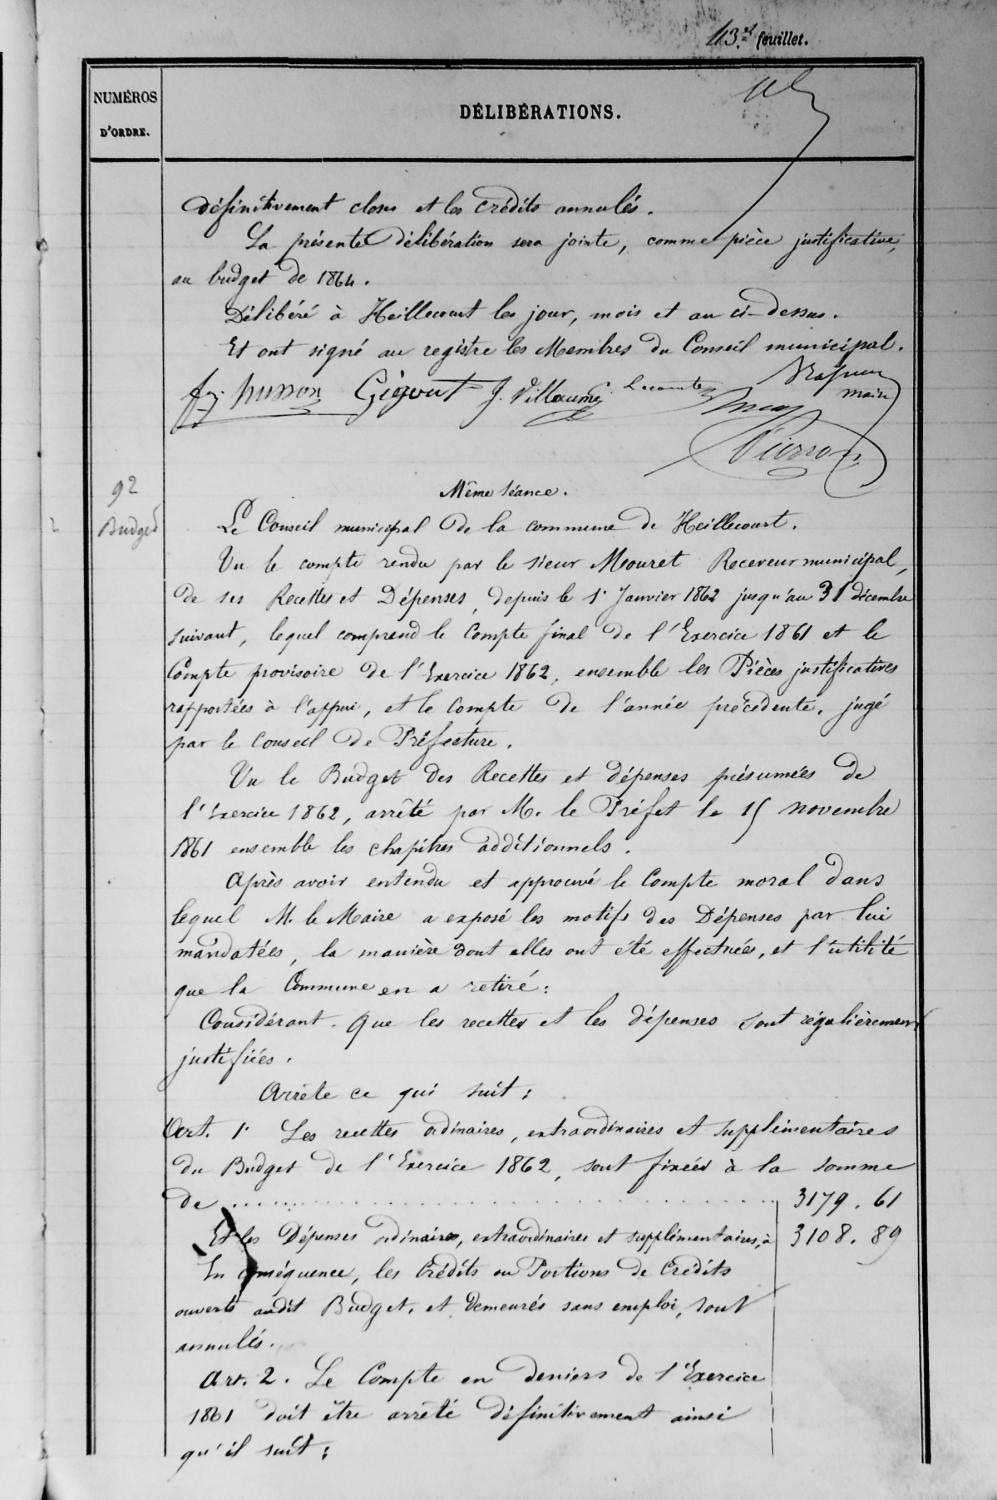 43.e feuillet.
NUMÉROS
D'ORDRE.
DÉLIBÉRATIONS.
définitivement closes et les crédits annulés.
La présente délibération sera jointe, comme pièce justificative,
au budget de 1864.
Délibéré à Heillecourt les jour, mois et an ci-dessus.
Et ont signé au registre les Membres du Conseil municipal.
husson Gégout J. Villaumé Lecomte
maire
Pierron
Même séance.
92
Budget
Le Conseil municipal de la commune de Heillecourt.
Vu le compte rendu par le sieur Mouret Receveur municipal,
de ses Recettes et Dépenses, depuis le 1r Janvier 1862 jusqu'au 31 décembre
suivant, lequel comprend le Compte final de l'Exercice 1861 et le
Compte provisoire de l'Exercice 1862, ensemble les Pièces justificatives
rapportées à l'appui, et le Compte de l'année précédente, jugé
par le Conseil de Préfecture.
Vu le Budget des Recettes et dépenses présumées de
l'Exercice 1862, arrêté par M. le Préfet le 15 novembre
1861 ensemble les chapitres additionnels.
Après avoir entendu et approuvé le Compte moral dans
lequel M. le Maire a exposé les motifs des Dépenses par lui
mandatées, la manière dont elles ont été effectuées, et l'utilité
que la Commune en a retiré:
Considérant. Que les recettes et les dépenses sont régulièrement
justifiées.
Arrête ce qui suit:
Art. 1r Les recettes ordinaires, extraordinaires et supplémentaires
du Budget de l'Exercice 1862, sont fixées à la somme
de .......... 3179. 61
Et les Dépenses ordinaires, extraordinaires et supplémentaires, à 3108. 89
En conséquence, les Crédits ou Portions de Crédits
ouverts audit Budget, et demeurés sans emploi, sont
annulés.
Art. 2. Le Compte en deniers de l'Exercice
1861 doit être arrêté définitivement ainsi
qu'il suit: